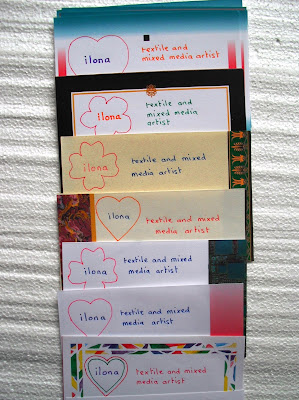 ilona
textile and
mixed media artist
ilona
textile and
mixed media
artist
ilona
textile and mixed
media artist
ilona
textile and mixed
media artist
ilona
textile and mixed
media artist
ilona
textile and mixed
media artist
ilona
textile and mixed
media artist